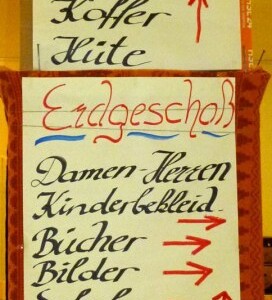 Koffer
Hüte
Erdgeschoß
Damen-Herren
Kinderbekleid.
Bücher
Bilder